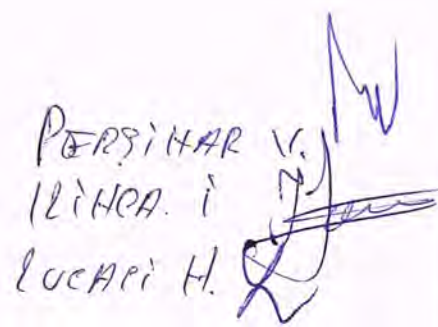 PERȘINAR V.
ILINCA. I
LUCACI H.